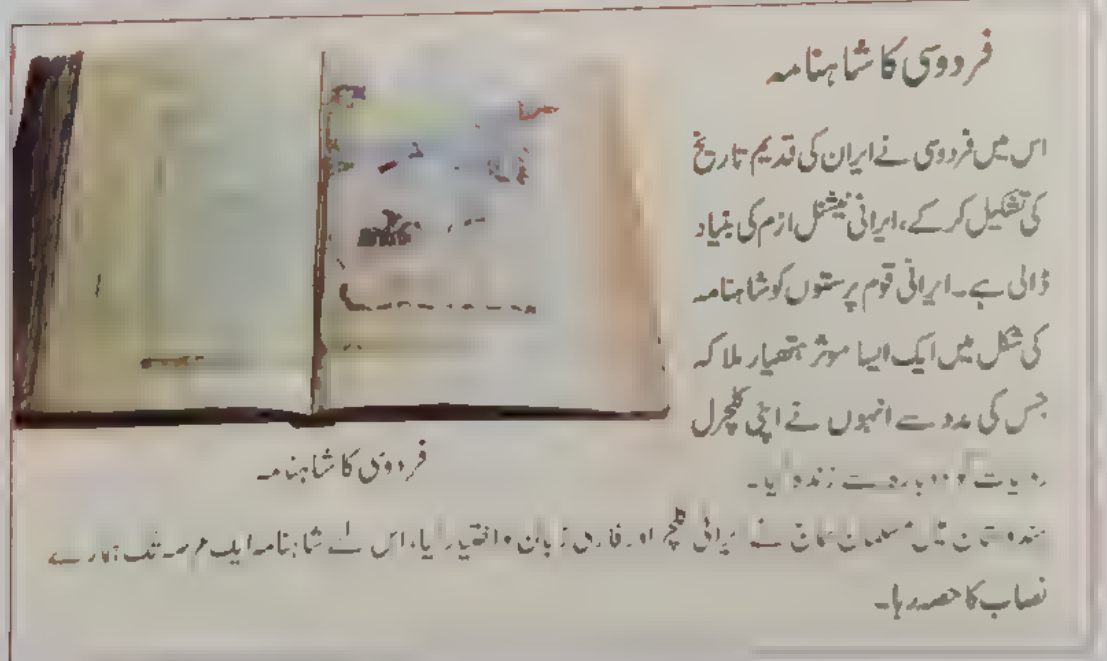 فردوسی کا شاہنامہ
اس میں فردوسی نے ایران کی قدیم تاریخ
کی تشکیل کر کے، ایرانی نیشنل ازم کی بنیاد
ڈالی ہے۔ ایرانی قوم پرستوں کو شاہنامہ
کی شکل میں ایک ایسا موثر ہتھیار ملا کہ
جس کی مدد سے انہوں نے اپنی کلچرل
روایت کو دوبارہ سے زندہ کیا۔
فردوسی کا شاہنامہ
ہندوستان میں مسلمان نے ایرانی کلچر اور فارسی زبان کو اختیار کیا، اس لئے شاہنامہ ایک عرصہ تک ہمارے
نصاب کا حصہ رہا۔